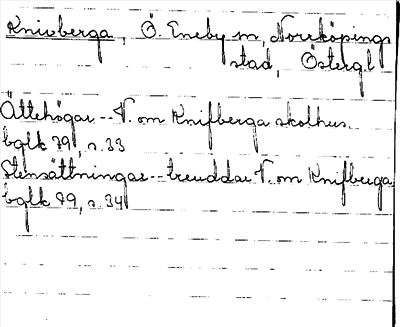 Knivberga, Ö. Eneby sn, Norrköpings
stad, Östergl
Ättehögar -- V. om Knifberga skolhus.
bglk 79, s. 33
Stensättningar -- treuddar V. om Knifberga
bglk 79, s. 34